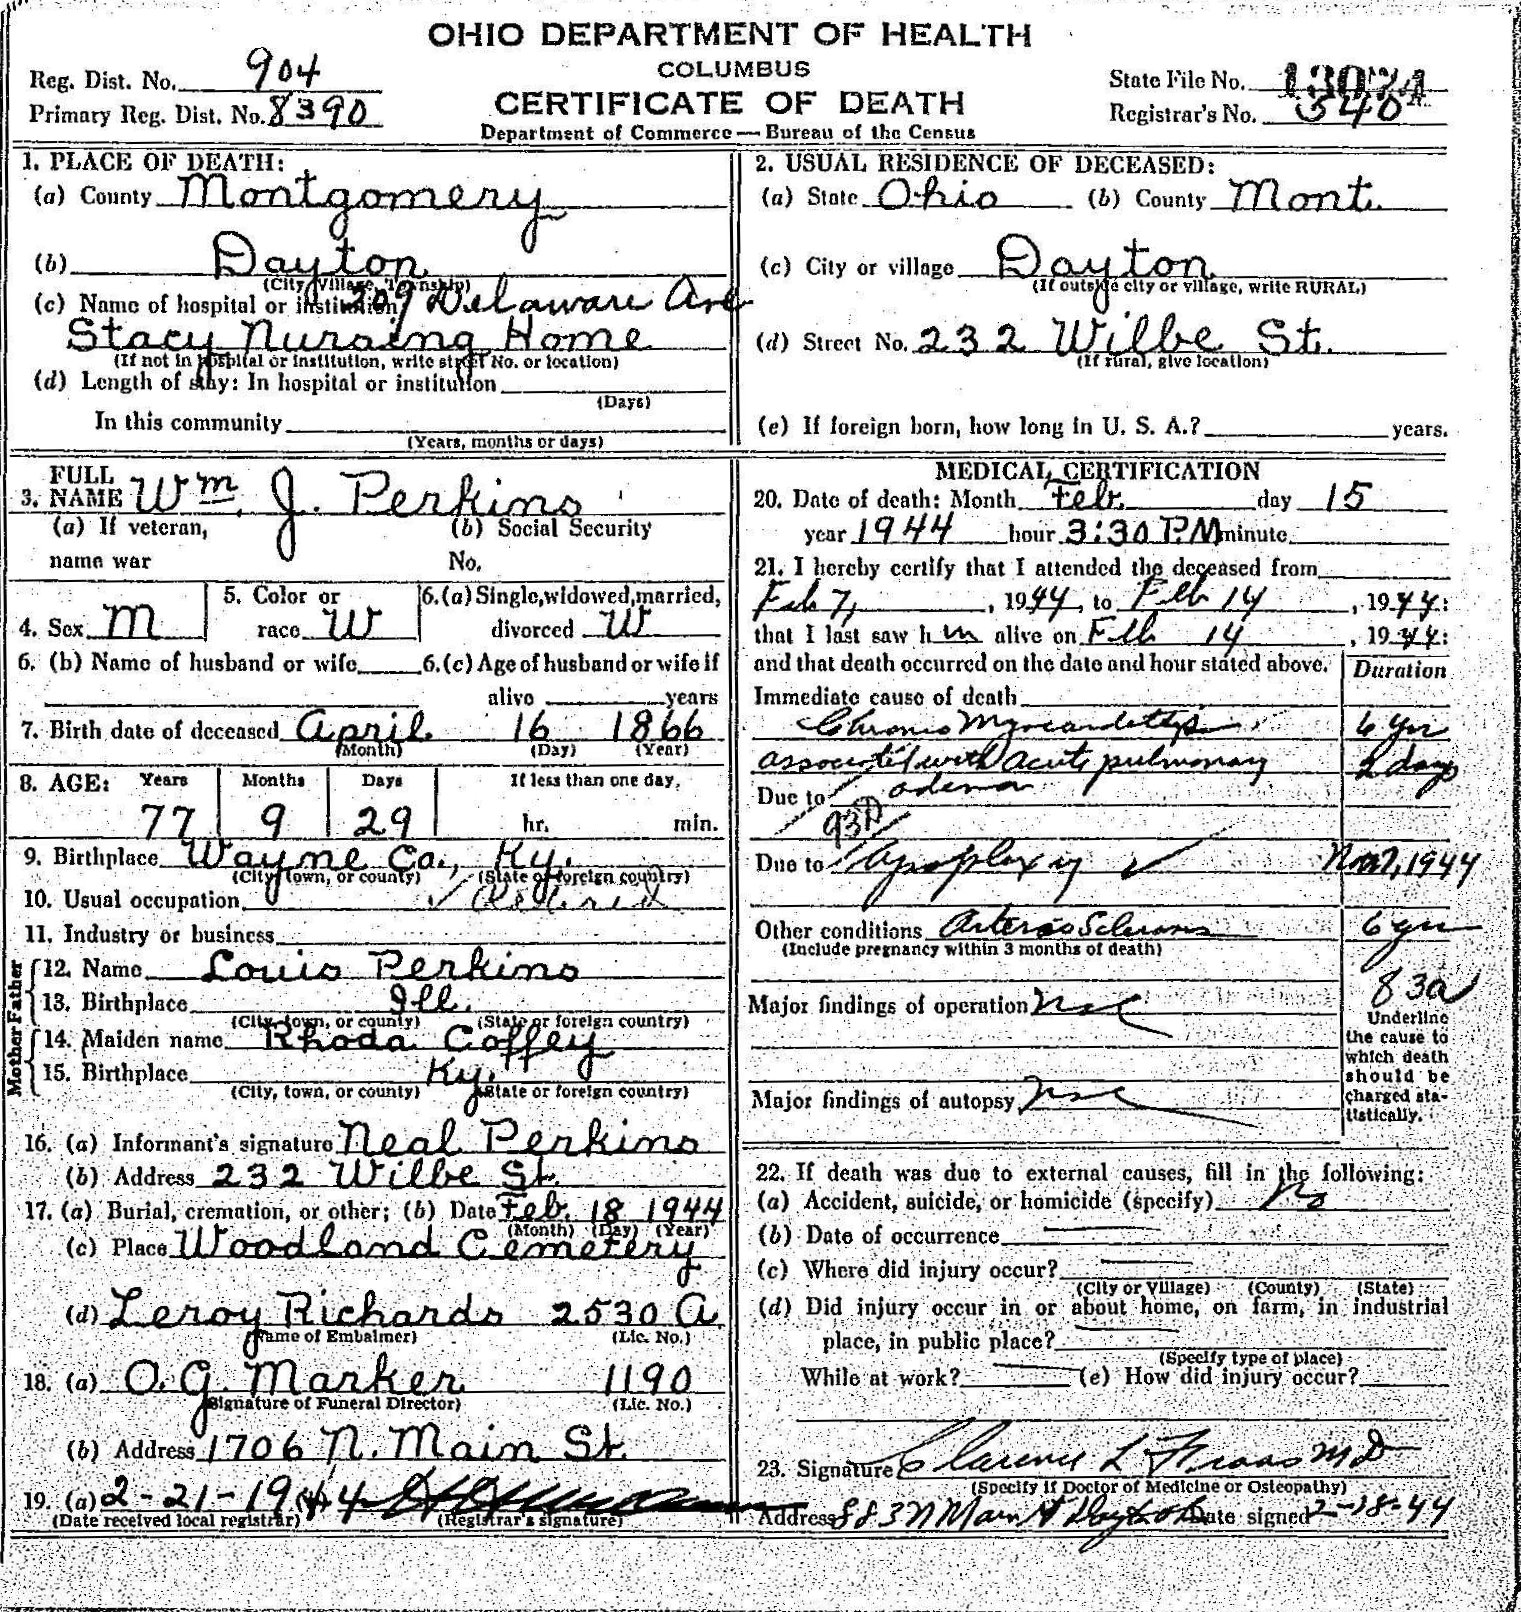 OHIO DEPARTMENT OF HEALTH
COLUMBUS
CERTIFICATE OF DEATH
Department of Commerce — Bureau of the Census
Reg. Dist. No. 904
Primary Reg. Dist. No. 8390
State File No.
Registrar's No. 540
1. PLACE OF DEATH:
(a) County Montgomery
(b) Dayton
(City, Village, Township)
(c) Name of hospital or institution: 209 Delaware Ave
Stacy Nursing Home
(If not in hospital or institution, write street No. or location)
(d) Length of stay: In hospital or institution
(Days)
In this community
(Years, months or days)
2. USUAL RESIDENCE OF DECEASED:
(a) State Ohio (b) County Mont.
(c) City or village Dayton
(If outside city or village, write RURAL)
(d) Street No. 232 Wilbe St.
(If rural, give location)
(e) If foreign born, how long in U. S. A.? years.
3. FULL NAME Wm. J. Perkins
(a) If veteran, (b) Social Security
name war No.
4. Sex M 5. Color or race W 6.(a) Single, widowed, married, divorced W
6. (b) Name of husband or wife 6.(c) Age of husband or wife if
alive years
7. Birth date of deceased April 16 1866
(Month) (Day) (Year)
8. AGE: Years Months Days If less than one day,
77 9 29 hr. min.
9. Birthplace Wayne Co., Ky.
(City, town, or county) (State or foreign country)
10. Usual occupation Retired
11. Industry or business
Father
12. Name Louis Perkins
13. Birthplace Ill.
(City, town, or county) (State or foreign country)
Mother
14. Maiden name Rhoda Coffey
15. Birthplace Ky.
(City, town, or county) (State or foreign country)
16. (a) Informant's signature Neal Perkins
(b) Address 232 Wilbe St.
17. (a) Burial, cremation, or other; (b) Date Feb. 18 1944
(Month) (Day) (Year)
(c) Place Woodland Cemetery
(d) Leroy Richards 2530 A
(Name of Embalmer) (Lic. No.)
18. (a) O. G. Marker 1190
(Signature of Funeral Director) (Lic. No.)
(b) Address 1706 N. Main St.
19. (a) 2-21-1944
(Date received local registrar) (Registrar's signature)
MEDICAL CERTIFICATION
20. Date of death: Month Feb. day 15
year 1944 hour 3:30 P.M minute
21. I hereby certify that I attended the deceased from
Feb 7, , 1944, to Feb 14 , 1944:
that I last saw h im alive on Feb 14 , 1944:
and that death occurred on the date and hour stated above. Duration
Immediate cause of death
Chronic Myocarditis 6 yrs
associated with acute pulmonary 2 days
Due to edema
93D
Due to Apoplexy ✓ 1944
Other conditions Arterio Sclerosis 6 yrs
(Include pregnancy within 3 months of death)
83a
Major findings of operation
Underline the cause to which death should be charged statistically.
Major findings of autopsy
22. If death was due to external causes, fill in the following:
(a) Accident, suicide, or homicide (specify) No
(b) Date of occurrence
(c) Where did injury occur?
(City or Village) (County) (State)
(d) Did injury occur in or about home, on farm, in industrial
place, in public place?
(Specify type of place)
While at work? (e) How did injury occur?
23. Signature Clarence L M D
(Specify if Doctor of Medicine or Osteopathy)
Address 883 N Main St Dayton Date signed 2-18-44